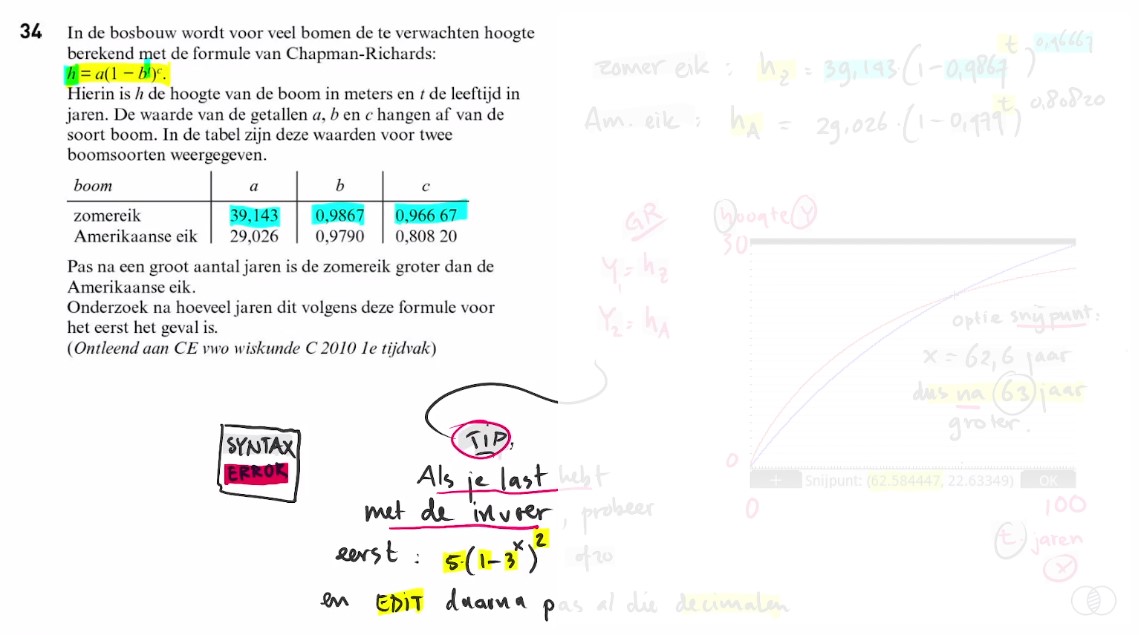 34 In de bosbouw wordt voor veel bomen de te verwachten hoogte
berekend met de formule van Chapman-Richards:
h = a(1 − bᵗ)ᶜ.
Hierin is h de hoogte van de boom in meters en t de leeftijd in
jaren. De waarde van de getallen a, b en c hangen af van de
soort boom. In de tabel zijn deze waarden voor twee
boomsoorten weergegeven.
boom a b c
zomereik 39,143 0,9867 0,966 67
Amerikaanse eik 29,026 0,9790 0,808 20
Pas na een groot aantal jaren is de zomereik groter dan de
Amerikaanse eik.
Onderzoek na hoeveel jaren dit volgens deze formule voor
het eerst het geval is.
(Ontleend aan CE vwo wiskunde C 2010 1e tijdvak)
SYNTAX
ERROR
TIP.
Als je last hebt
met de invoer, probeer
eerst : 5·(1-3ˣ)² of zo
en EDIT daarna pas al die decimalen
zomer eik : h_z = 39,143 (1-0,9867ᵗ)^0,96667
Am. eik : h_A = 29,026·(1-0,979ᵗ)^0,80820
GR
Y₁ = h_z
Y₂ = h_A
hoogte Y
30
optie snijpunt:
x = 62,6 jaar
dus na 63 jaar
groter.
0
+ Snijpunt: (62.584447, 22.63349) OK
0 100
t jaren
x